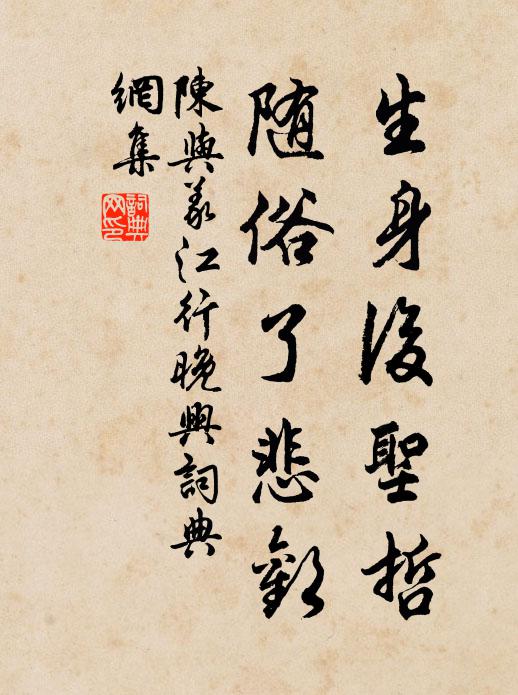 生身後聖哲
随俗了悲歡
陳與義江行晚興詞典
網集
詞典
网印